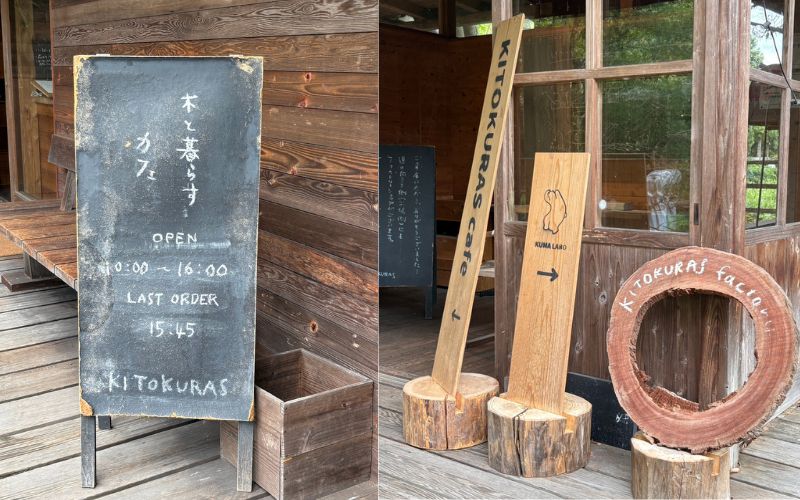 木と暮らす。
カフェ
OPEN
10:00 ~ 16:00
LAST ORDER
15:45
KITOKURAS
KITOKURAS cafe
↓
KUMA LAND
→
KITOKURAS factory